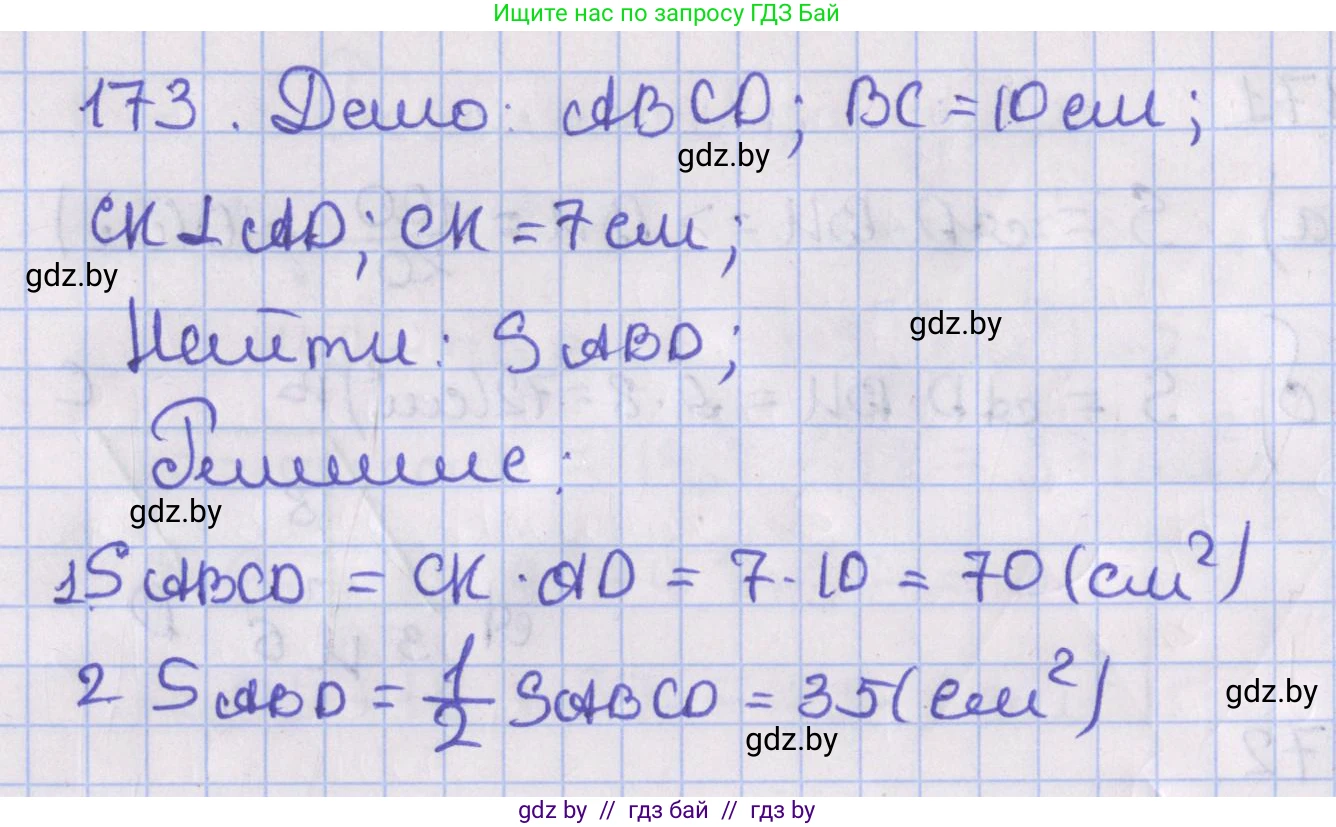 Ищите нас по запросу ГДЗ Бай
173. Дано: ABCD; BC = 10 см;
gdz.by
CK ⊥ AD; CK = 7 см;
gdz.by
Найти: S ABD;
gdz.by
Решение:
gdz.by
1 S ABCD = CK · AD = 7 · 10 = 70 (см²)
2 S ABD = 1/2 S ABCD = 35 (см²)
gdz.by
gdz.by
gdz by // гдз бай // гдз by